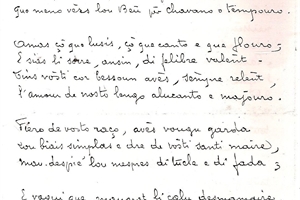 que meno vèrs lou Bèu pèr chavano o tempouro.
Amas ço que lusis, ço que canto e que flouro;
E siás li sorre, ansin, di felibre valent.
Tins vòsti cor bessoun avès, sèmpre relent,
L'amour de nosto lengo alucanto e majouro.
Fièro de vosto raço, avès vougu garda
Lou biais simplas e dre de vòsti santi maire,
Mau-despié lou mespres di tucle e di fada;
E vaqui que